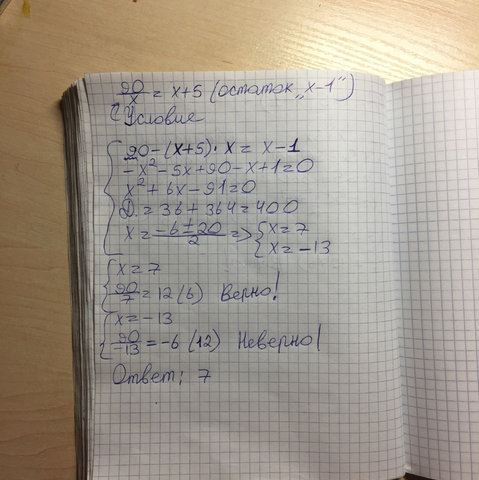 90/x = x+5 (остаток „x-1")
Условие
90-(x+5)·x = x-1
-x²-5x+90-x+1=0
x²+6x-91=0
D.=36+364=400
x=(-6±20)/2=> {x=7
{x=-13
{x=7
90/7=12(6) Верно!
{x=-13
90/-13=-6(12) Неверно!
Ответ: 7